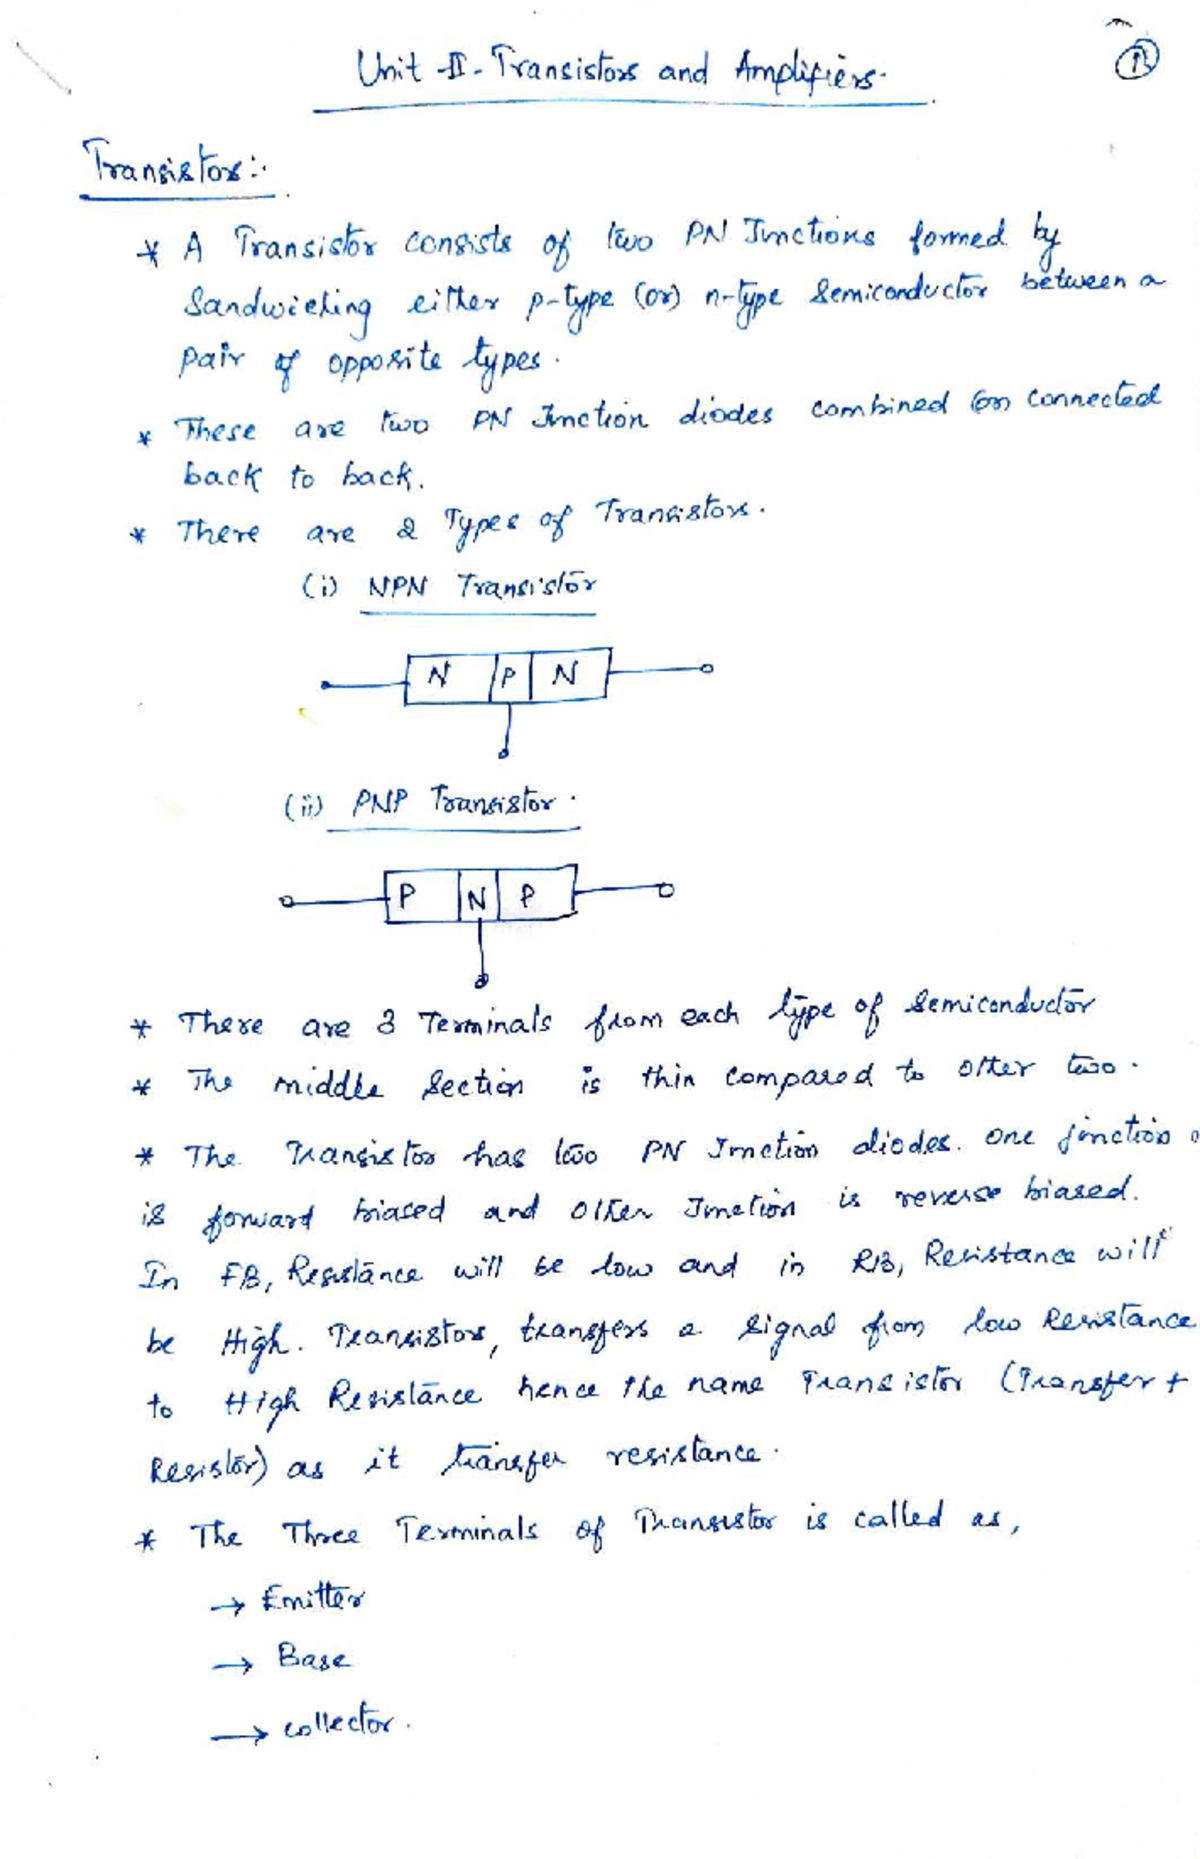 Unit - II - Transistors and Amplifiers.
1
Transistor :-
* A Transistor consists of two PN Junctions formed by
Sandwiching either p-type (or) n-type Semiconductor between a
pair of opposite types.
* These are two PN Junction diodes combined (or) connected
back to back.
* There are 2 Types of Transistors.
(i) NPN Transistor
N P N
(ii) PNP Transistor.
P N P
* There are 3 Terminals from each type of Semiconductor
* The middle Section is thin compared to other two.
* The Transistor has two PN Junction diodes. One junction
is forward biased and other Junction is reverse biased.
In FB, Resistance will be low and in RB, Resistance will
be High. Transistors, transfers a signal from low Resistance
to High Resistance hence the name Transistor (Transfer +
Resistor) as it transfer resistance.
* The Three Terminals of Transistor is called as,
→ Emitter
→ Base
→ collector.